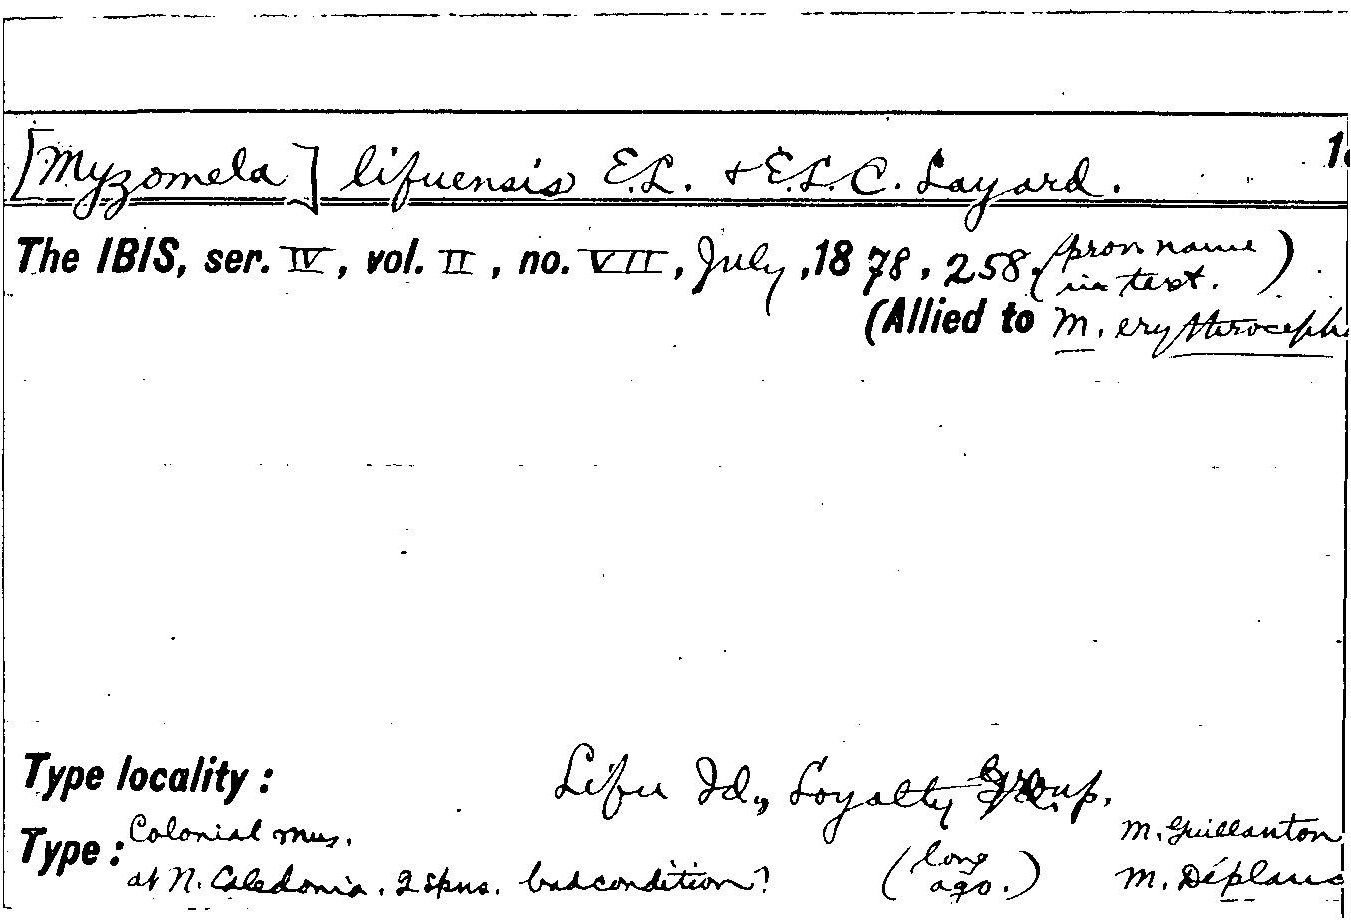 [Myzomela] lifuensis E.L. & E.L.C. Layard.
The IBIS, ser. IV, vol. II, no. VII, July, 1878. 258. (prov name
in text.)
(Allied to M. erythroceph
Type locality: Lifu Id., Loyalty Group.
Type: Colonial Mus. M. Guillanton
at N. Caledonia. 2 spns. bad condition! (long ago.) M. Déplanc